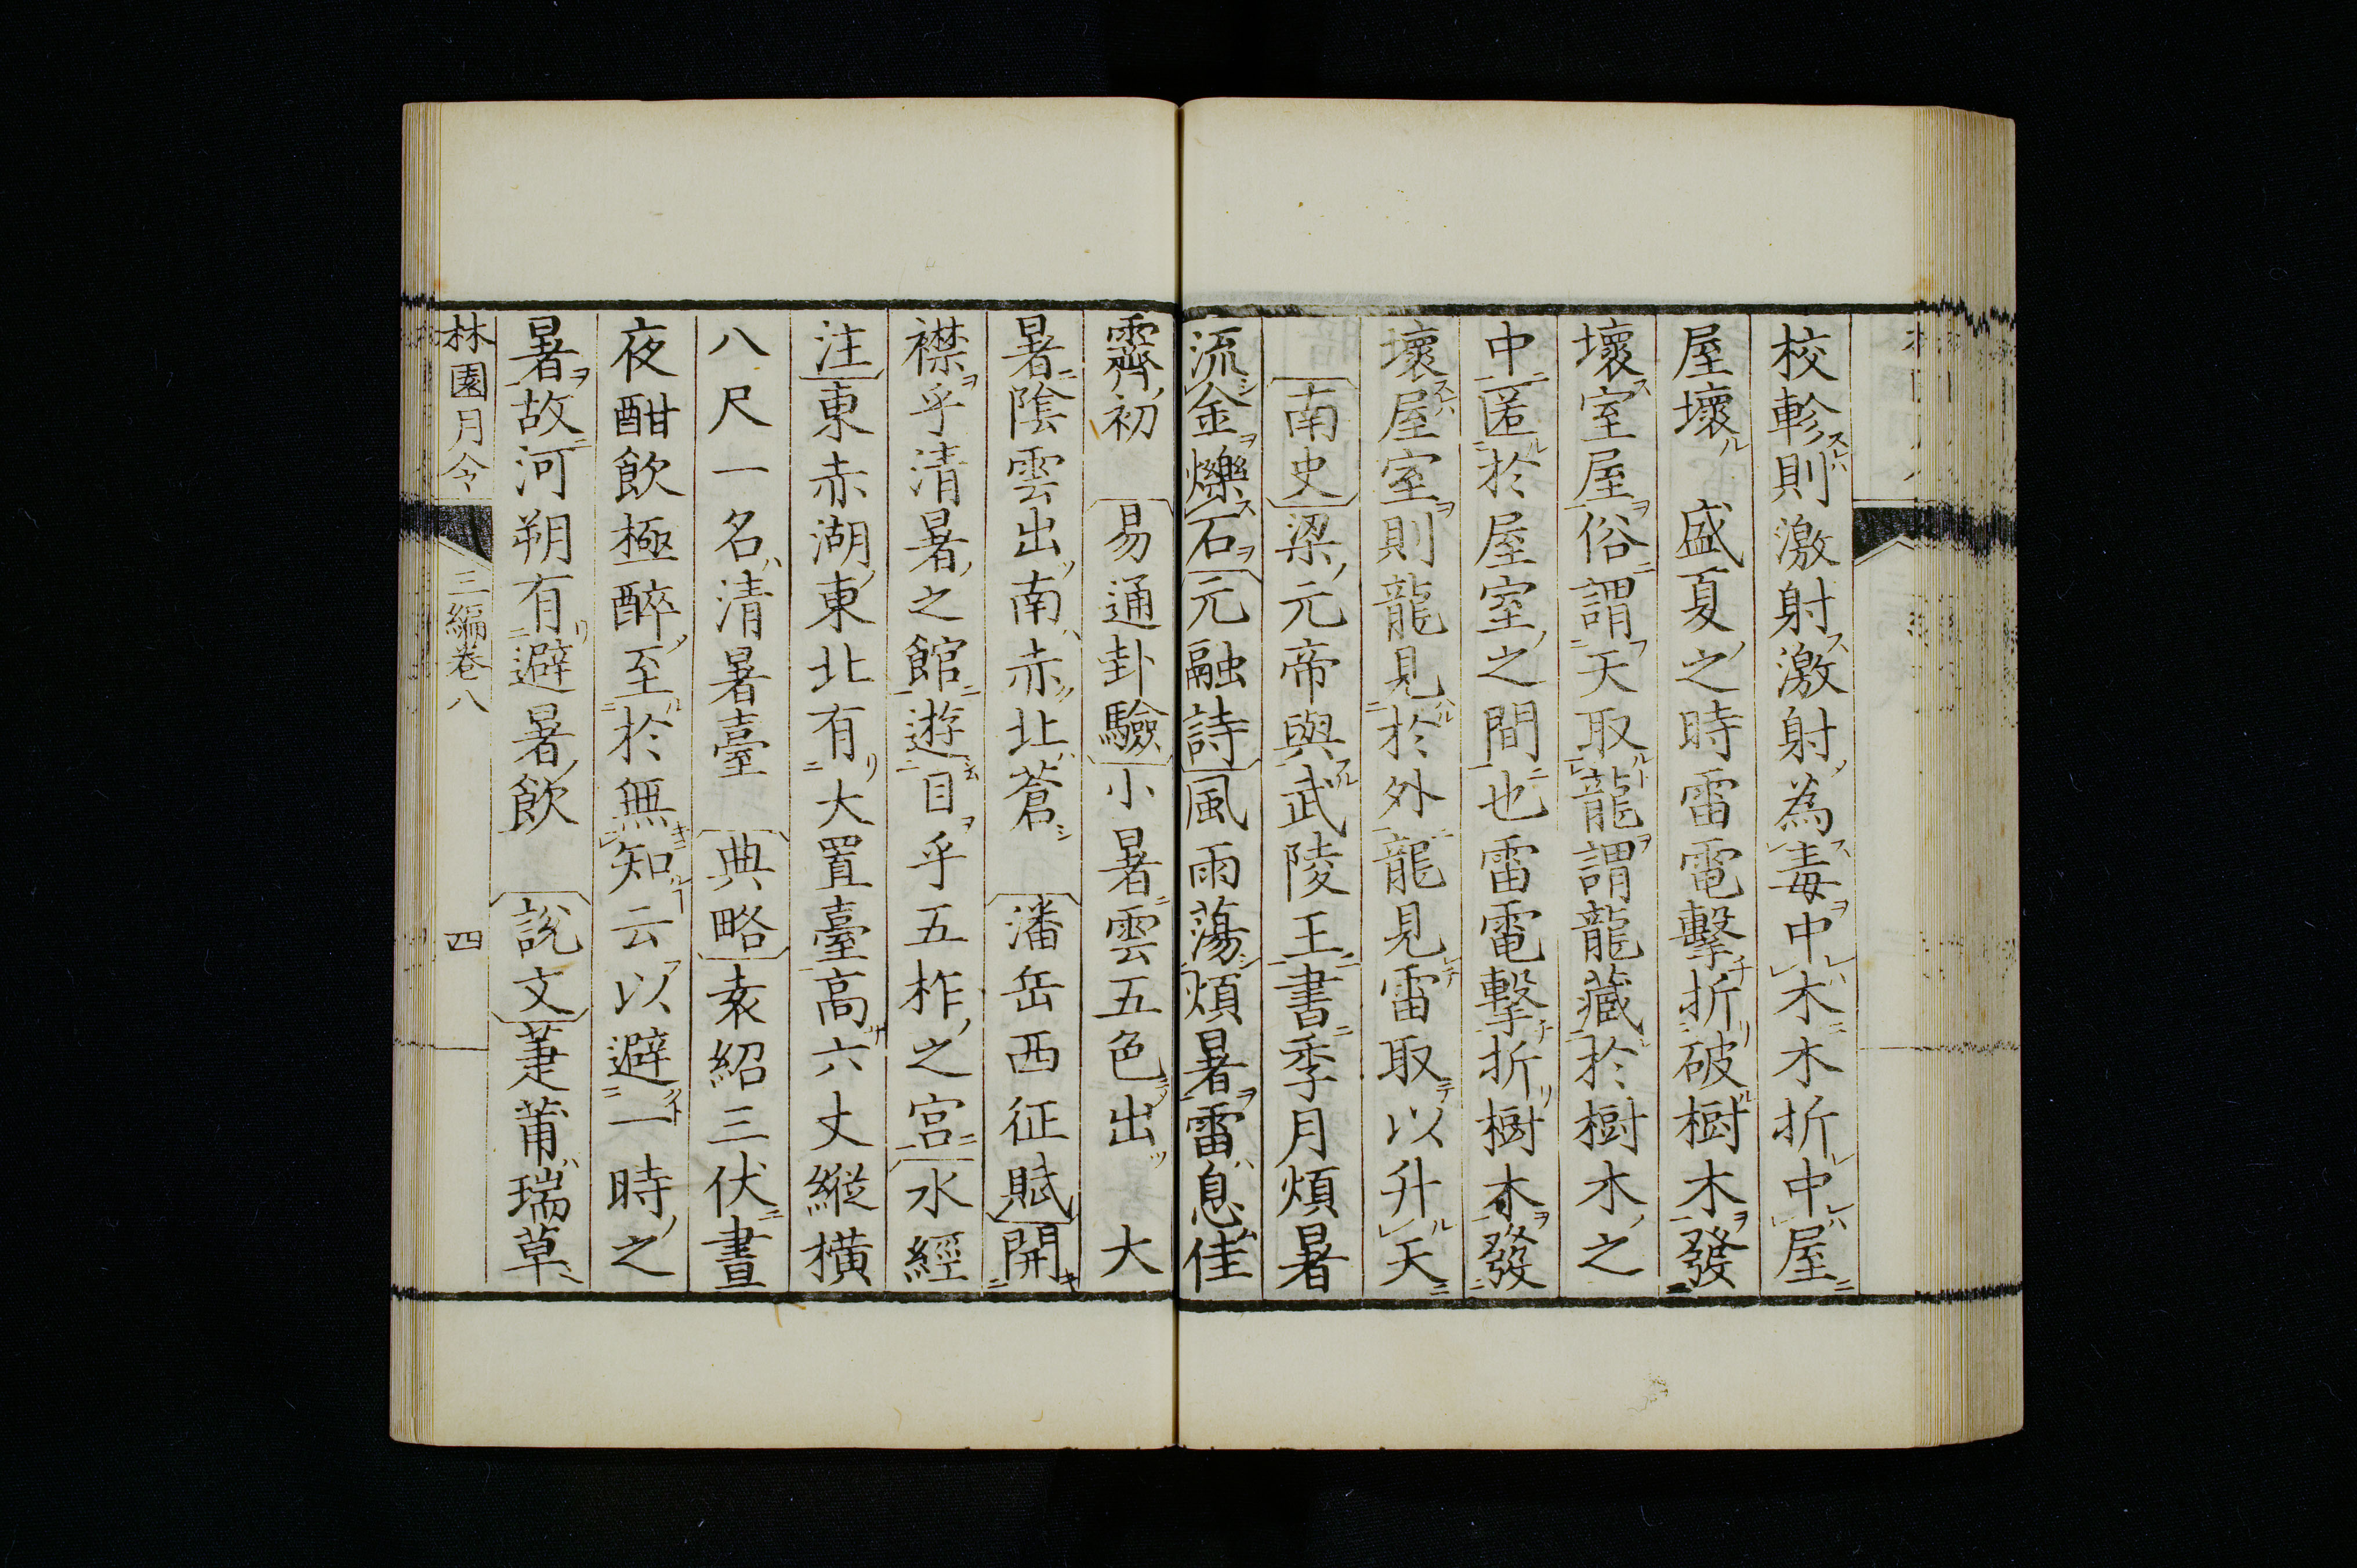 校軫則激射激射為毒中木木折中屋
屋壞　盛夏之時雷電擊折破樹木發
壞室屋俗謂天取龍謂龍藏於樹木之
中匿於屋室之間也雷電擊折樹木發
壞屋室則龍見於外龍見雷取以升天
南史梁元帝與武陵王書季月煩暑
流金爍石元融詩風雨蕩煩暑雷息佳
霽初　易通卦驗小暑雲五色出　大
暑陰雲出南赤北蒼　潘岳西征賦開
襟乎清暑之館遊目乎五柞之宮水經
注東赤湖東北有大置臺高六丈縱橫
八尺一名清暑臺　典略袁紹三伏晝
夜酣飲極醉至於無知云以避一時之
暑故河朔有避暑飲　說文萐莆瑞草
林園月令　三編卷八　四